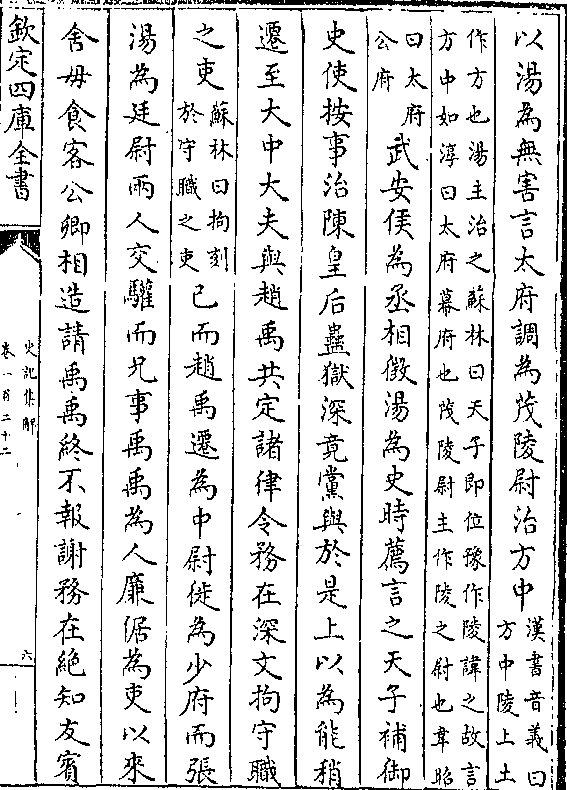 以湯為無害言太府調為茂陵尉治方中漢書音義曰
方中陵上土
作方也湯主治之蘇林曰天子即位豫作陵諱之故言
方中如淳曰太府幕府也茂陵尉主作陵之尉也韋昭
曰太府
公府
武安侯為丞相徵湯為史時薦言之天子補御
史使按事治陳皇后蠱獄深竟黨與於是上以為能稍
遷至大中大夫與趙禹共定諸律令務在深文拘守職
之吏蘇林曰拘刻
於守職之吏
已而趙禹遷為中尉徙為少府而張
湯為廷尉兩人交驩而兄事禹禹為人廉倨為吏以來
舍毋食客公卿相造請禹禹終不報謝務在絶知友賓
欽定四庫全書
史記集解
卷一百二十二
六